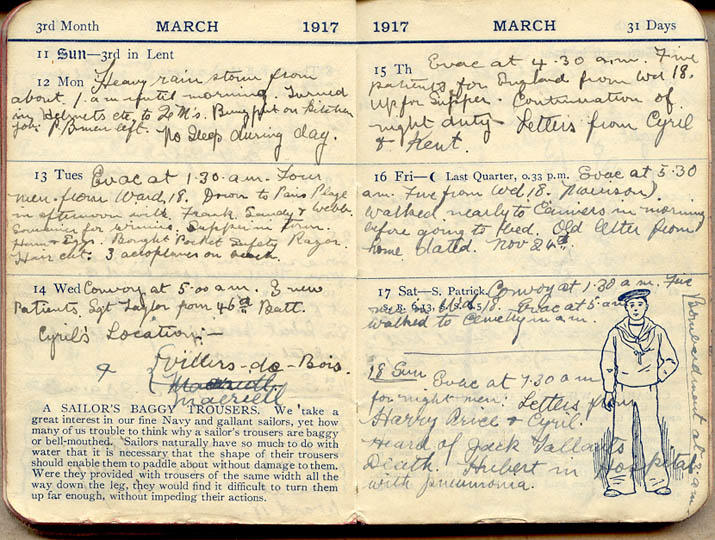 3rd Month MARCH 1917
11 Sun—3rd in Lent
12 Mon Heavy rain storm from
about 1 a.m until morning. Turned
my Helmets etc. to
Job. left. No Sleep during day.
13 Tues Evac at 1.30 a.m. Four
men from Ward 18. Down to Paris Plage
in afternoon with Frank, Sandy & Webb.
Souvenir for Winnie. Supper in Town.
Ham & Eggs. Bought Pocket Safety Razor.
Hair cut. 3 aeroplanes on beach.
14 Wed Convoy at 5.00 a.m. 3 new
Patients. Sgt Taylor from 46th Batt.
Cyril's Location:—
& Villers-do-Bois.
A SAILOR'S BAGGY TROUSERS. We take a
great interest in our fine Navy and gallant sailors, yet how
many of us trouble to think why a sailor's trousers are baggy
or bell-mouthed. Sailors naturally have so much to do with
water that it is necessary that the shape of their trousers
should enable them to paddle about without damage to them.
Were they provided with trousers of the same width all the
way down the leg, they would find it difficult to turn them
up far enough, without impeding their actions.
1917 MARCH 31 Days
15 Th Evac at 4.30 a.m. Five
patients for England from Wd 18.
Up for Supper. Continuation of
night duty. Letters from Cyril
& Kent.
16 Fri—☾ Last Quarter, 0.33 p.m. Evac at 5.30
am. Five from Wd 18.
Walked nearly to in morning
before going to bed. Old letter from
home dated. Nov 24th.
17 Sat—S. Patrick. Convoy at 1.30 a.m. Five
18. Evac at 5 am
walked to Cemetery in a.m.
18 Sun Evac at 7.30 a.m
for night men. Letters from
Harry Price & Cyril.
Heard of Jack Vallants
Death. Hubert in Hospital
with pneumonia.
Bombardment at 3 a.m.